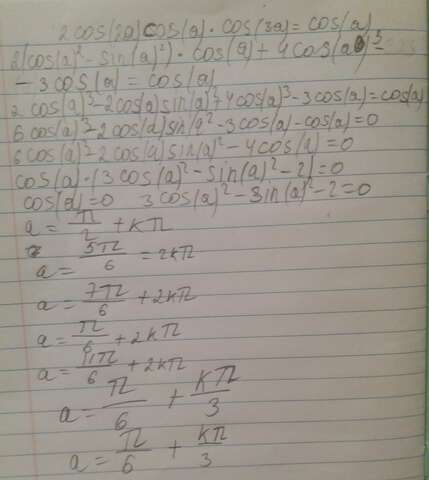 2cos(2a)cos(a) · cos(3a) = cos(a)
2(cos(a)² - sin(a)²) · cos(a) + 4cos(a)³
- 3cos(a) = cos(a)
2cos(a)³ - 2cos(a)sin(a)² + 4cos(a)³ - 3cos(a) = cos(a)
6cos(a)³ - 2cos(a)sin a² - 3cos(a) - cos(a) = 0
6cos(a)³ - 2cos(a)sin(a)² - 4cos(a) = 0
cos(a) · (3cos(a)² - sin(a)² - 2) = 0
cos(a) = 0 3cos(a)² - sin(a)² - 2 = 0
a = π/2 + kπ
a = 5π/6 = 2kπ
a = 7π/6 + 2kπ
a = π/6 + 2kπ
a = 11π/6 + 2kπ
a = π/6 + kπ/3
a = π/6 + kπ/3